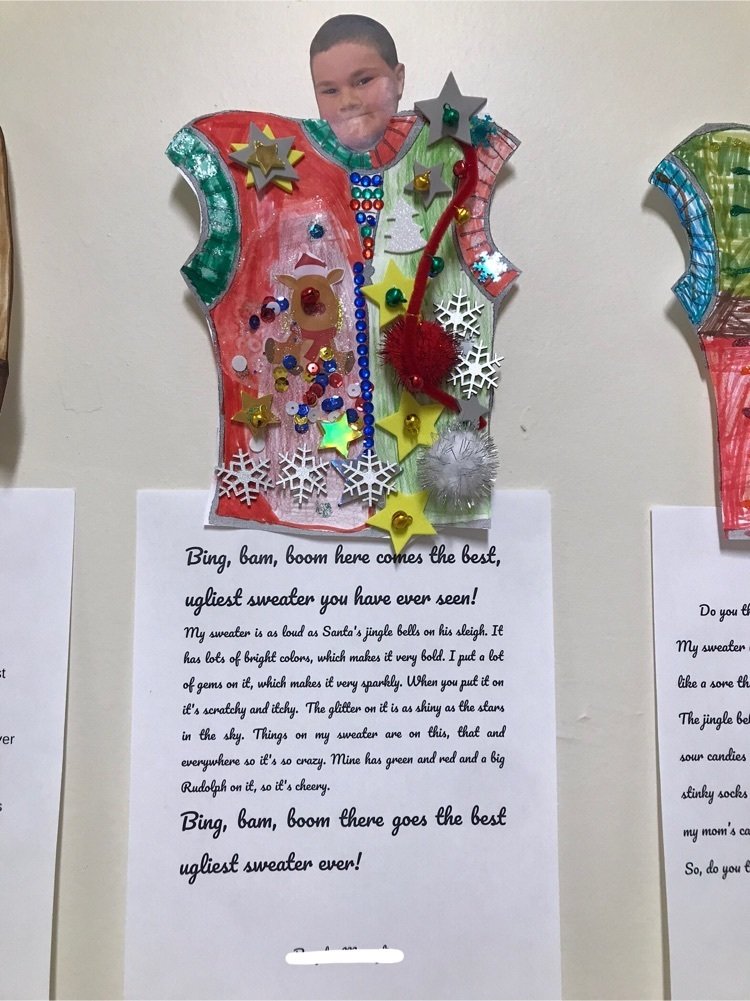 Bing, bam, boom here comes the best,
ugliest sweater you have ever seen!
My sweater is as loud as Santa's jingle bells on his sleigh. It
has lots of bright colors, which makes it very bold. I put a lot
of gems on it, which makes it very sparkly. When you put it on
it's scratchy and itchy. The glitter on it is as shiny as the stars
in the sky. Things on my sweater are on this, that and
everywhere so it's so crazy. Mine has green and red and a big
Rudolph on it, so it's cheery.
Bing, bam, boom there goes the best
ugliest sweater ever!
Do you
My sweater
like a sore
The jingle
sour candies
stinky socks
my mom's
So, do you